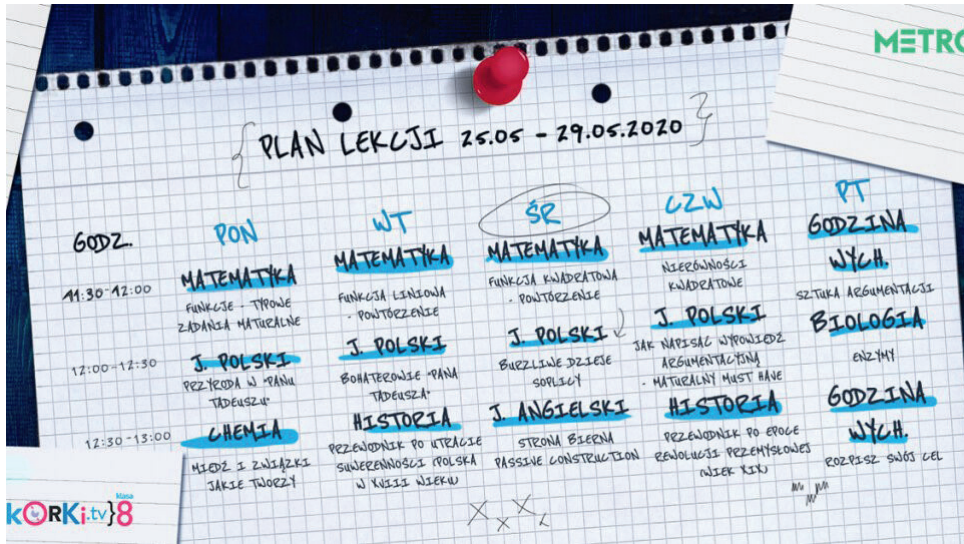 METRO
PLAN LEKCJI 25.05 - 29.05.2020
GODZ.
PON
WT
ŚR
CZW
PT
11:30-12:00
MATEMATYKA
FUNKCJE - TYPOWE
ZADANIA MATURALNE
MATEMATYKA
FUNKCJA LINIOWA
- POWTÓRZENIE
MATEMATYKA
FUNKCJA KWADRATOWA
- POWTÓRZENIE
MATEMATYKA
NIERÓWNOŚCI
KWADRATOWE
GODZINA
WYCH.
SZTUKA ARGUMENTACJI
12:00-12:30
J. POLSKI
PRZYRODA W "PANU
TADEUSZU"
J. POLSKI
BOHATEROWIE "PANA
TADEUSZA"
J. POLSKI
BURZLIWE DZIEJE
SOPLICY
J. POLSKI
JAK NAPISAĆ WYPOWIEDŹ
ARGUMENTACYJNĄ
- MATURALNY MUST HAVE
BIOLOGIA
ENZYMY
12:30-13:00
CHEMIA
MIEDŹ I ZWIĄZKI
JAKIE TWORZY
HISTORIA
PRZEWODNIK PO UTRACIE
SUWERENNOŚCI (POLSKA
W XVIII WIEKU)
J. ANGIELSKI
STRONA BIERNA
PASSIVE CONSTRUCTION
HISTORIA
PRZEWODNIK PO EPOCE
REWOLUCJI PRZEMYSŁOWEJ
(WIEK XIX)
GODZINA
WYCH.
ROZPISZ SWÓJ CEL
klasa
kORKi.tv}8